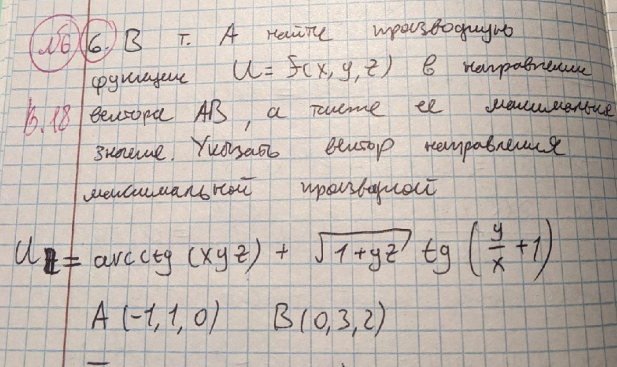 №6 6. В т. А найти производную
функции U = f(x, y, z) в направлении
В.18 вектора AB, а также ее максимальное
значение. Указать вектор направления
максимальной производной
U = arcctg (xyz) + √(1+yz) tg (y/x + 1)
A (-1, 1, 0) B (0, 3, 2)